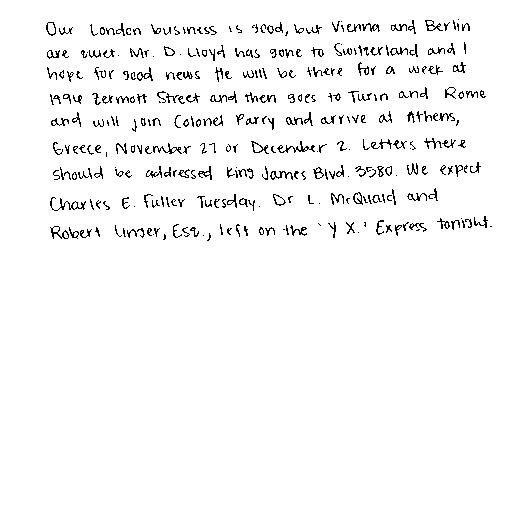 Our London business is good, but Vienna and Berlin
are quiet. Mr. D. Lloyd has gone to Switzerland and I
hope for good news He will be there for a week at
1996 Zermott Street and then goes to Turin and Rome
and will join Colonel Parry and arrive at Athens,
Greece, November 27 or December 2. Letters there
should be addressed King James Blvd. 3580. We expect
Charles E. Fuller Tuesday. Dr L. McQuaid and
Robert Unger, Esq., left on the 'Y X.' Express tonight.